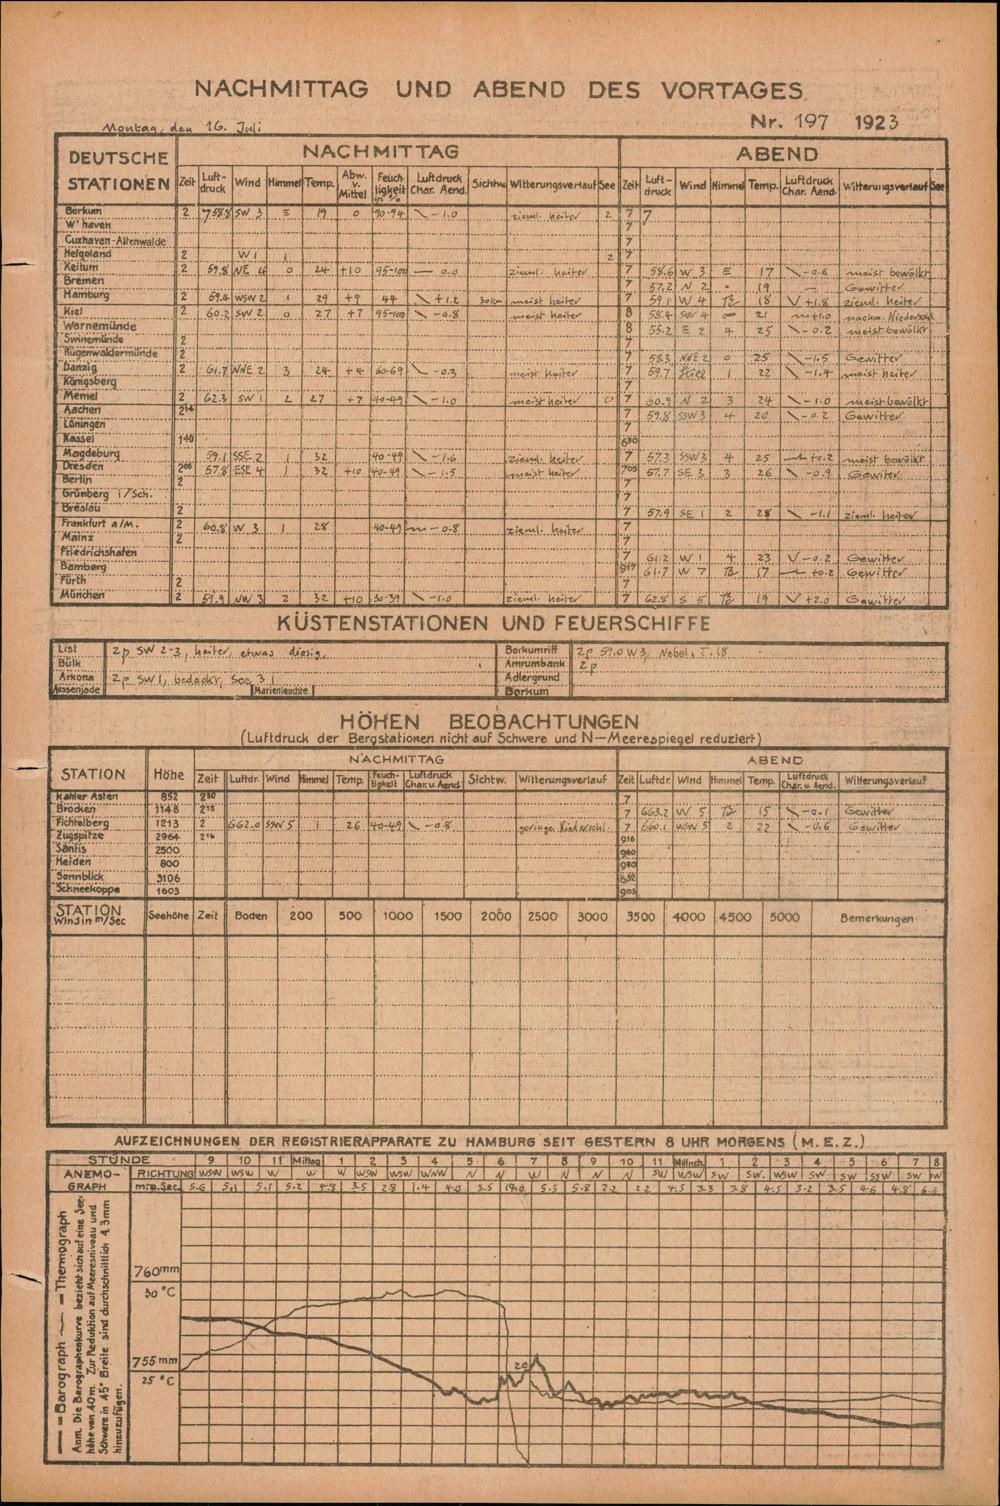 NACHMITTAG UND ABEND DES VORTAGES
Montag, den 16. Juli Nr. 197 1923
DEUTSCHE STATIONEN NACHMITTAG ABEND
Zeit Luft-druck Wind Himmel Temp. Abw. v. Mittel Feuch-ligkeit in % Luftdruck Char. Aend. Sichtw Witterungsverlauf See Zeit Luft-druck Wind Himmel Temp. Luftdruck Char. Aend. Witterungsverlauf See
Borkum 2 758.8 SW 3 = 19 0 90-94 \ -1.0 zieml. heiter 2 7 7
W'haven 7
Cuxhaven-Altenwalde 7
Helgoland 2 W 1 1 2 7
Keitum 2 59.8 NE 4 0 24 +10 95-100 — 0.0 zieml. heiter 7 58.6 W 3 = 17 \ -0.6 meist bewölkt
Bremen 7 57.2 N 2 • 19 — Gewitter
Hamburg 2 59.4 WSW 2 1 29 +9 44 \ +1.2 30km meist heiter 7 59.1 W 4 18 V +1.8 zieml. heiter
Kiel 2 60.2 SW 2 0 27 +7 95-100 \ -0.8 meist heiter 8 58.4 SW 4 ∞ 21 +1.0 nachm. Niederschl.
Warnemünde 8 55.2 E 2 4 25 \ -0.2 meist bewölkt
Swinemünde 2 7
Rügenwaldermünde 2 7 58.3 NNE 2 0 25 \ -1.5 Gewitter
Danzig 2 61.7 NNE 2 3 24 +4 60-69 \ -0.3 meist heiter 7 59.7 Still 1 22 \ -1.4 meist heiter
Königsberg 7
Memel 2 62.3 SW 1 2 27 +7 40-49 \ -1.0 meist heiter 0 7 60.9 N 2 3 24 \ -1.0 meist bewölkt
Aachen 2 14 7 59.8 SSW 3 4 20 \ -0.2 Gewitter
Löningen 7
Kassel 1 40 6 50
Magdeburg 59.1 SSE 2 1 32 40-49 \ -1.6 zieml. heiter 7 57.3 SSW 3 4 25 +0.2 meist bewölkt
Dresden 2 06 57.8 ESE 4 1 32 +10 40-49 \ -1.5 meist heiter 7 05 57.7 SE 3 3 26 \ -0.9 Gewitter
Berlin 2 7
Grünberg i/Sch. 7
Breslau 2 7 57.9 SE 1 2 28 \ -1.1 zieml. heiter
Frankfurt a/M. 2 60.8 W 3 1 28 40-49 -0.8 zieml. heiter 7
Mainz 2 7
Friedrichshafen 7 61.2 W 1 4 23 V -0.2 Gewitter
Bamberg 9 17 61.7 W 7 17 +0.2 Gewitter
Fürth 2 7
München 2 59.9 NW 3 2 32 +10 30-39 \ -1.0 zieml. heiter 7 62.8 S 5 19 V +2.0 Gewitter
KÜSTENSTATIONEN UND FEUERSCHIFFE
List 2p SW 2-3, heiter, etwas diesig. Borkumriff 2p 59.0 W3, Nebel, T. 18
Bülk Amrumbank 2p
Arkona 2p SW 1, bedeckt, See 3 Adlergrund
Aussenjade Marienleuchte Borkum
HÖHEN BEOBACHTUNGEN
(Luftdruck der Bergstationen nicht auf Schwere und N—Meerespiegel reduziert)
STATION Höhe NACHMITTAG ABEND
Zeit Luftdr. Wind Himmel Temp. Feuch-ligkeit Luftdruck Char. u. Aend. Sichtw. Witterungsverlauf Zeit Luftdr. Wind Himmel Temp. Luftdruck Char. u. Aend. Witterungsverlauf
Kahler Asten 852 2 50 7
Brocken 1148 2 15 7 663.2 W 5 15 \ -0.1 Gewitter
Fichtelberg 1213 2 662.0 SSW 5 1 26 40-49 \ -0.8 geringe Niederschl. 7 660.1 WSW 5 2 22 \ -0.6 Gewitter
Zugspitze 2964 2 16 9 16
Säntis 2500 9 40
Heiden 800 9 40
Sonnblick 3106 6 32
Schneekoppe 1603 9 03
STATION Wind in m/Sec Seehöhe Zeit Boden 200 500 1000 1500 2000 2500 3000 3500 4000 4500 5000 Bemerkungen
AUFZEICHNUNGEN DER REGISTRIERAPPARATE ZU HAMBURG SEIT GESTERN 8 UHR MORGENS (M.E.Z.)
STUNDE 9 10 11 Mittag 1 2 3 4 5 6 7 8 9 10 11 Mittnch. 1 2 3 4 5 6 7 8
ANEMO-GRAPH RICHTUNG WSW WSW W W W WSW WSW WNW N N W N N N SW WSW SW SW. WSW SW SW SSW SW SW
m.p.Sec. 5.6 5.1 5.1 5.2 4.8 3.5 2.8 1.4 4.0 3.5 19.0 5.5 5.8 2.2 2.2 4.5 3.3 3.8 4.5 3.2 3.5 4.6 4.8 6.6
— = Barograph — = Thermograph
Anm. Die Barographenkurve bezieht sich auf eine See-
höhe von 40m. Zur Reduktion auf Meeresniveau und
Schwere in 45° Breite sind durchschnittlich 4.3mm
hinzuzufügen.
760mm
30 °C
755 mm
25 °C
20